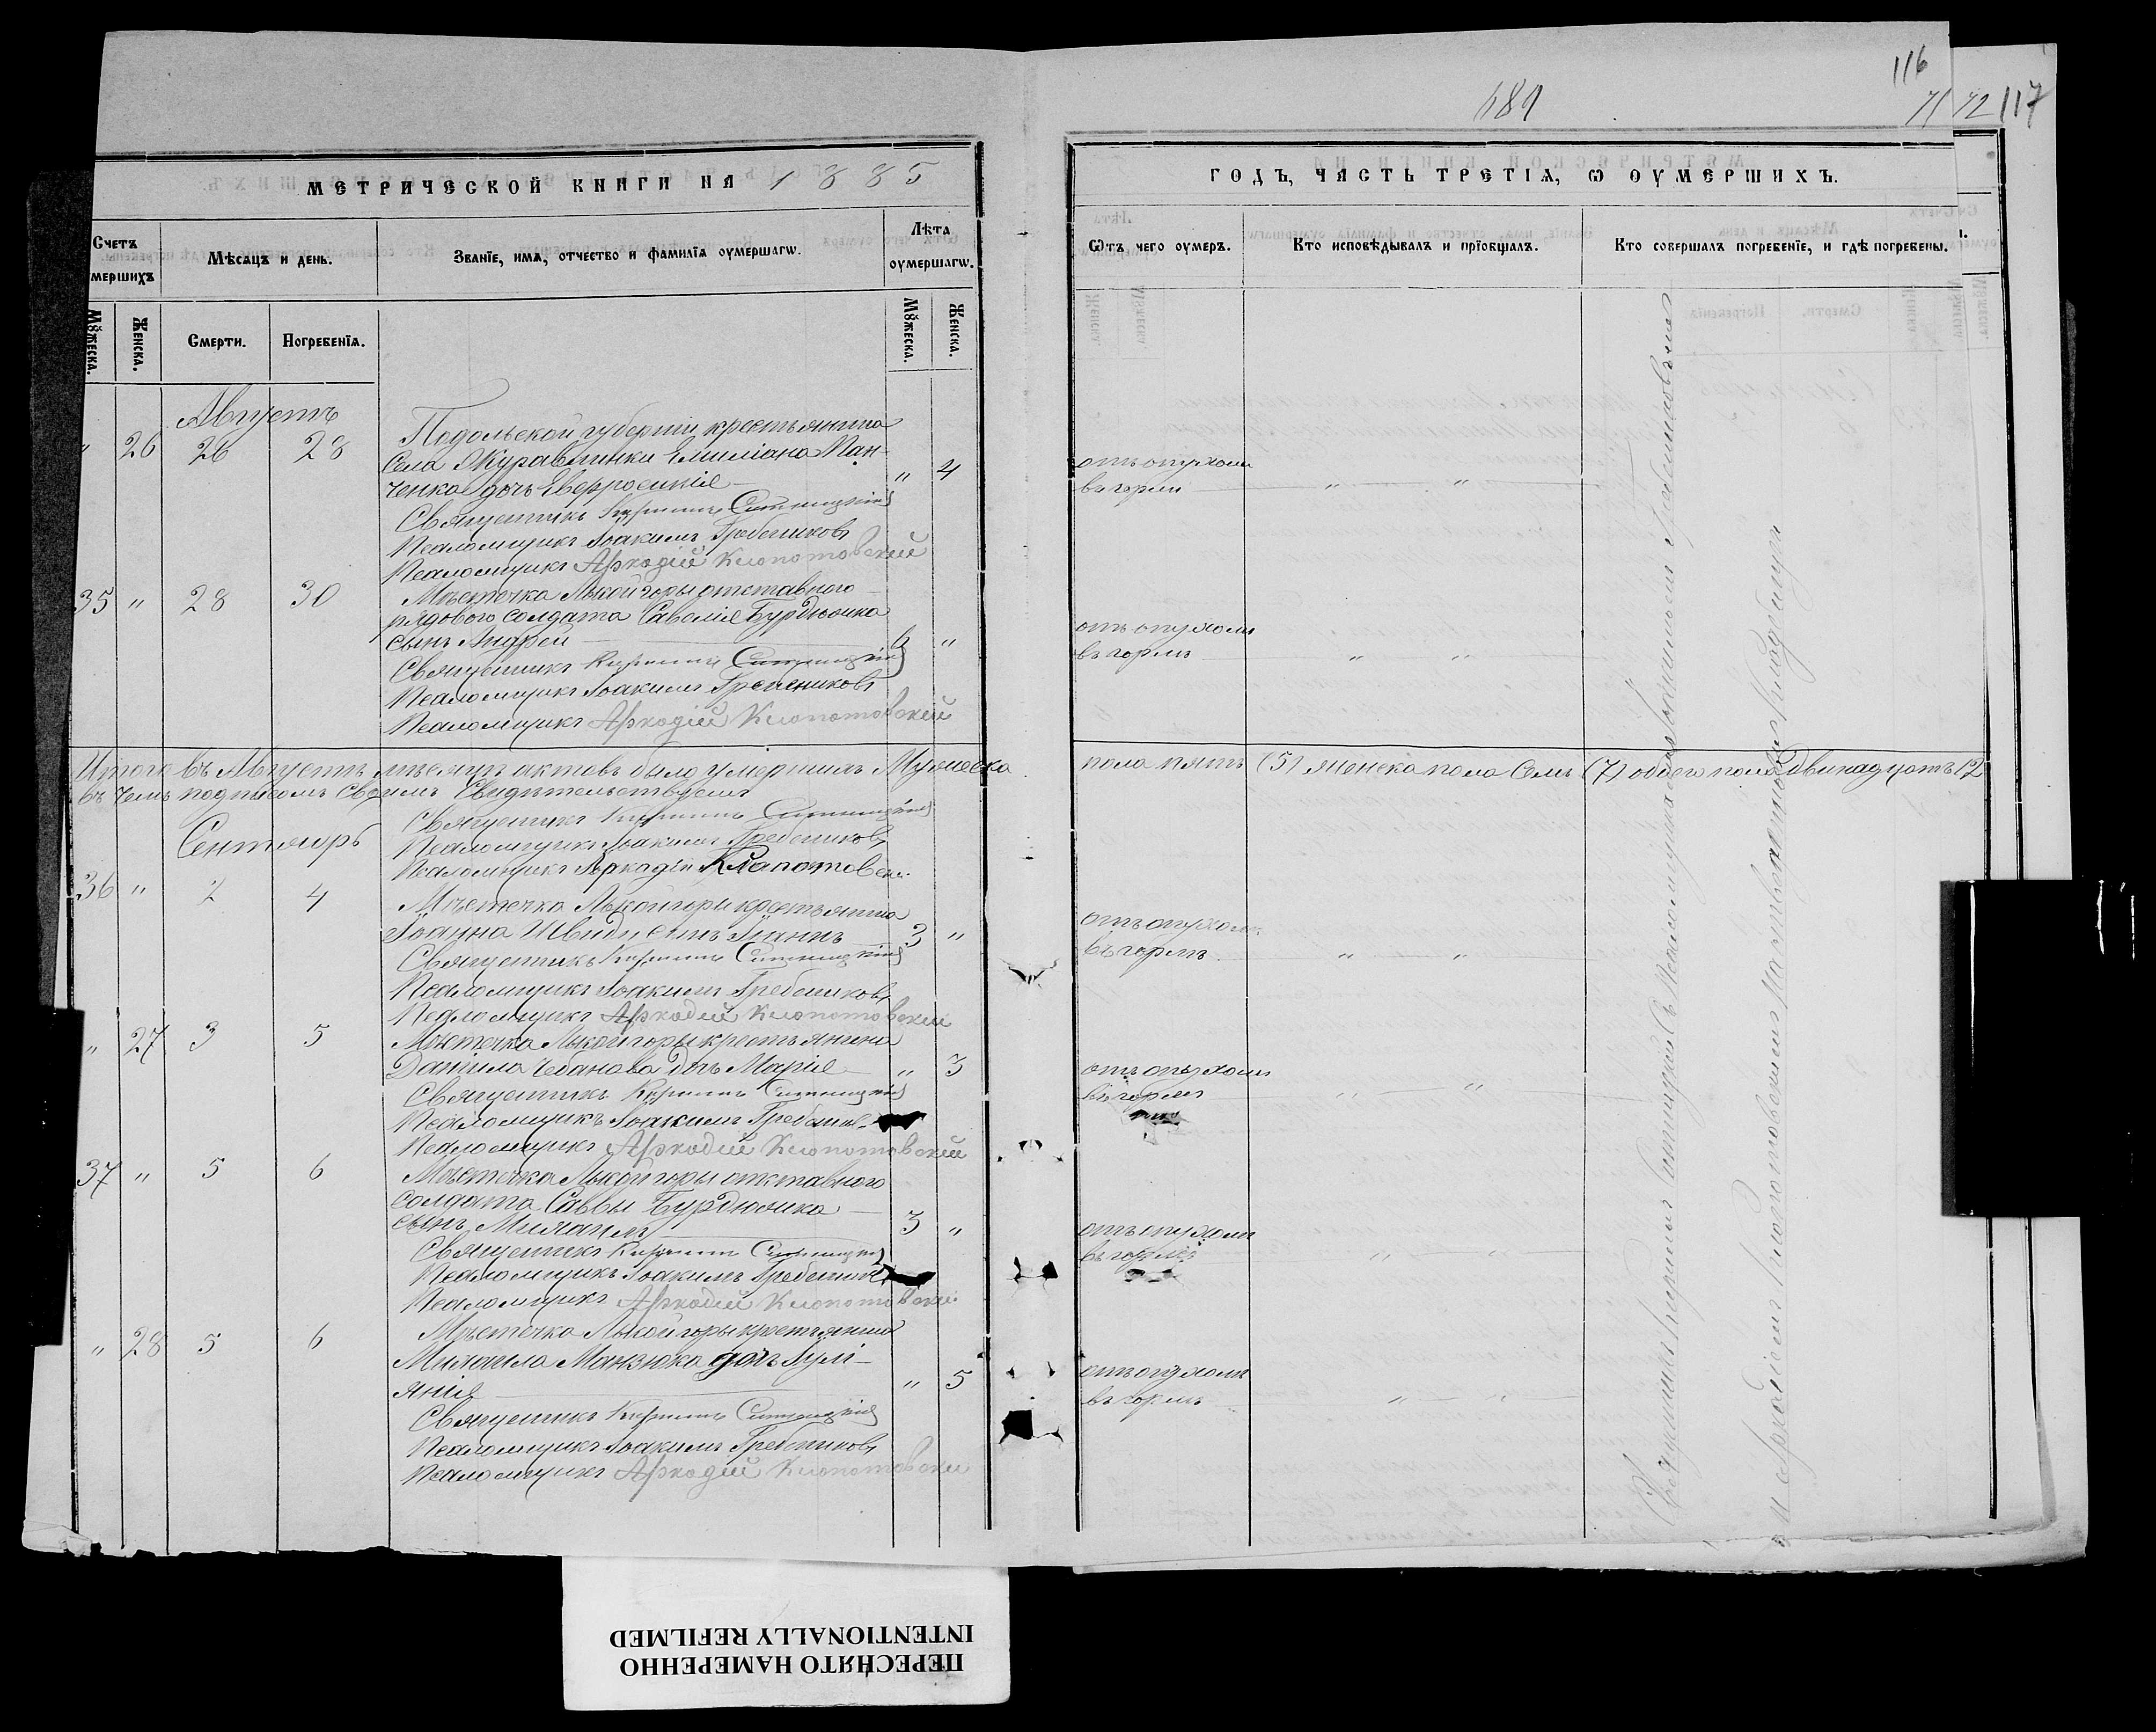 116
189
71 72 117
МЕТРИЧЕСКОЙ КНИГИ НА 1885
ГОДЪ, ЧАСТЬ ТРЕТІѦ, Ѡ ОУМЕРШИХЪ.
Счетъ мершихъ
Мѣсяцъ и день.
Званїе, имѧ, отчество и фамилїѧ оумершагѡ.
Лѣта оумершагѡ.
Ѿтъ чего оумеръ.
Кто исповѣдывалъ и прїобщалъ.
Кто совершалъ погребенїе, и гдѣ погребены.
Мꙋжеска.
Женска.
Смерти.
Погребенїѧ.
Мꙋжеска.
Женска.
Августъ
" 26 26 28 Подольской губерніи крестьянина
села Журавлинки Емиліана Пан-
ченка дочь Евфросинія " 4 отъ опухоли
въ горли " "
Священникъ Кириллъ Ситницкій
Псаломщикъ Іоакимъ Гребениковъ
Псаломщикъ Аркадій Клопотовскій
35 " 28 30 Мѣстечка Лысойгоры отставного
рядового солдата Савелія Бурдюжа
сынъ Андрей 6 " отъ опухоли
въ горлѣ " "
Священникъ Кириллъ Ситницкій
Псаломщикъ Іоакимъ Гребениковъ
Псаломщикъ Аркадій Клопотовскій
Итого въ Августѣ мѣсяцѣ актовъ было умершихъ Мужеска пола пять (5) женска пола семь (7) обоего пола двинадцать 12
въ чемъ подписомъ своимъ свидѣтельствуемъ
Священникъ Кириллъ Ситницкій
Псаломщикъ Іоакимъ Гребениковъ
Псаломщикъ Аркадій Клопотовскій
Сентябрь
36 " 2 4 Мѣстечка Лысойгоры крестьянина
Іоанна Швидц сынъ Іоаннъ 3 " отъ опухоли
въ горлѣ " "
Священникъ Кириллъ Ситницкій
Псаломщикъ Іоакимъ Гребениковъ
Псаломщикъ Аркадій Клопотовскій
" 27 3 5 Мѣстечка Лысойгоры крестьянина
Даніила Чебанова дочь Марія " 3 отъ опухоли
въ горлѣ " "
Священникъ Кириллъ Ситницкій
Псаломщикъ Іоакимъ Гребеник
Псаломщикъ Аркадій Клопотовскій
37 " 5 6 Мѣстечка Лысойгоры отставного
солдата Саввы Бурдюжа
сынъ Михаилъ 3 " отъ опухоли
въ горлѣ " "
Священникъ Кириллъ Ситницкій
Псаломщикъ Іоакимъ Гребеник
Псаломщикъ Аркадій Клопотовскій
" 28 5 6 Мѣстечка Лысойгоры крестьянина
Михаила Манзюка дочь Іулі-
янія " 5 отъ опухоли
въ горлѣ " "
Священникъ Кириллъ Ситницкій
Псаломщикъ Іоакимъ Гребениковъ
Псаломщикъ Аркадій Клопотовскій
Священникъ Кириллъ Ситницкій съ Псаломщиками Іоакимомъ Гребениковымъ
и Аркадіемъ Клопотовскимъ на приходскомъ кладбищи
ПЕРЕСНЯТО НАМЕРЕННО
INTENTIONALLY REFILMED